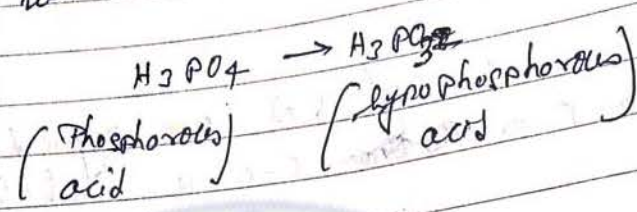 H3PO4 → H3PO3
(Phosphorous acid) (hypophosphorous acid)